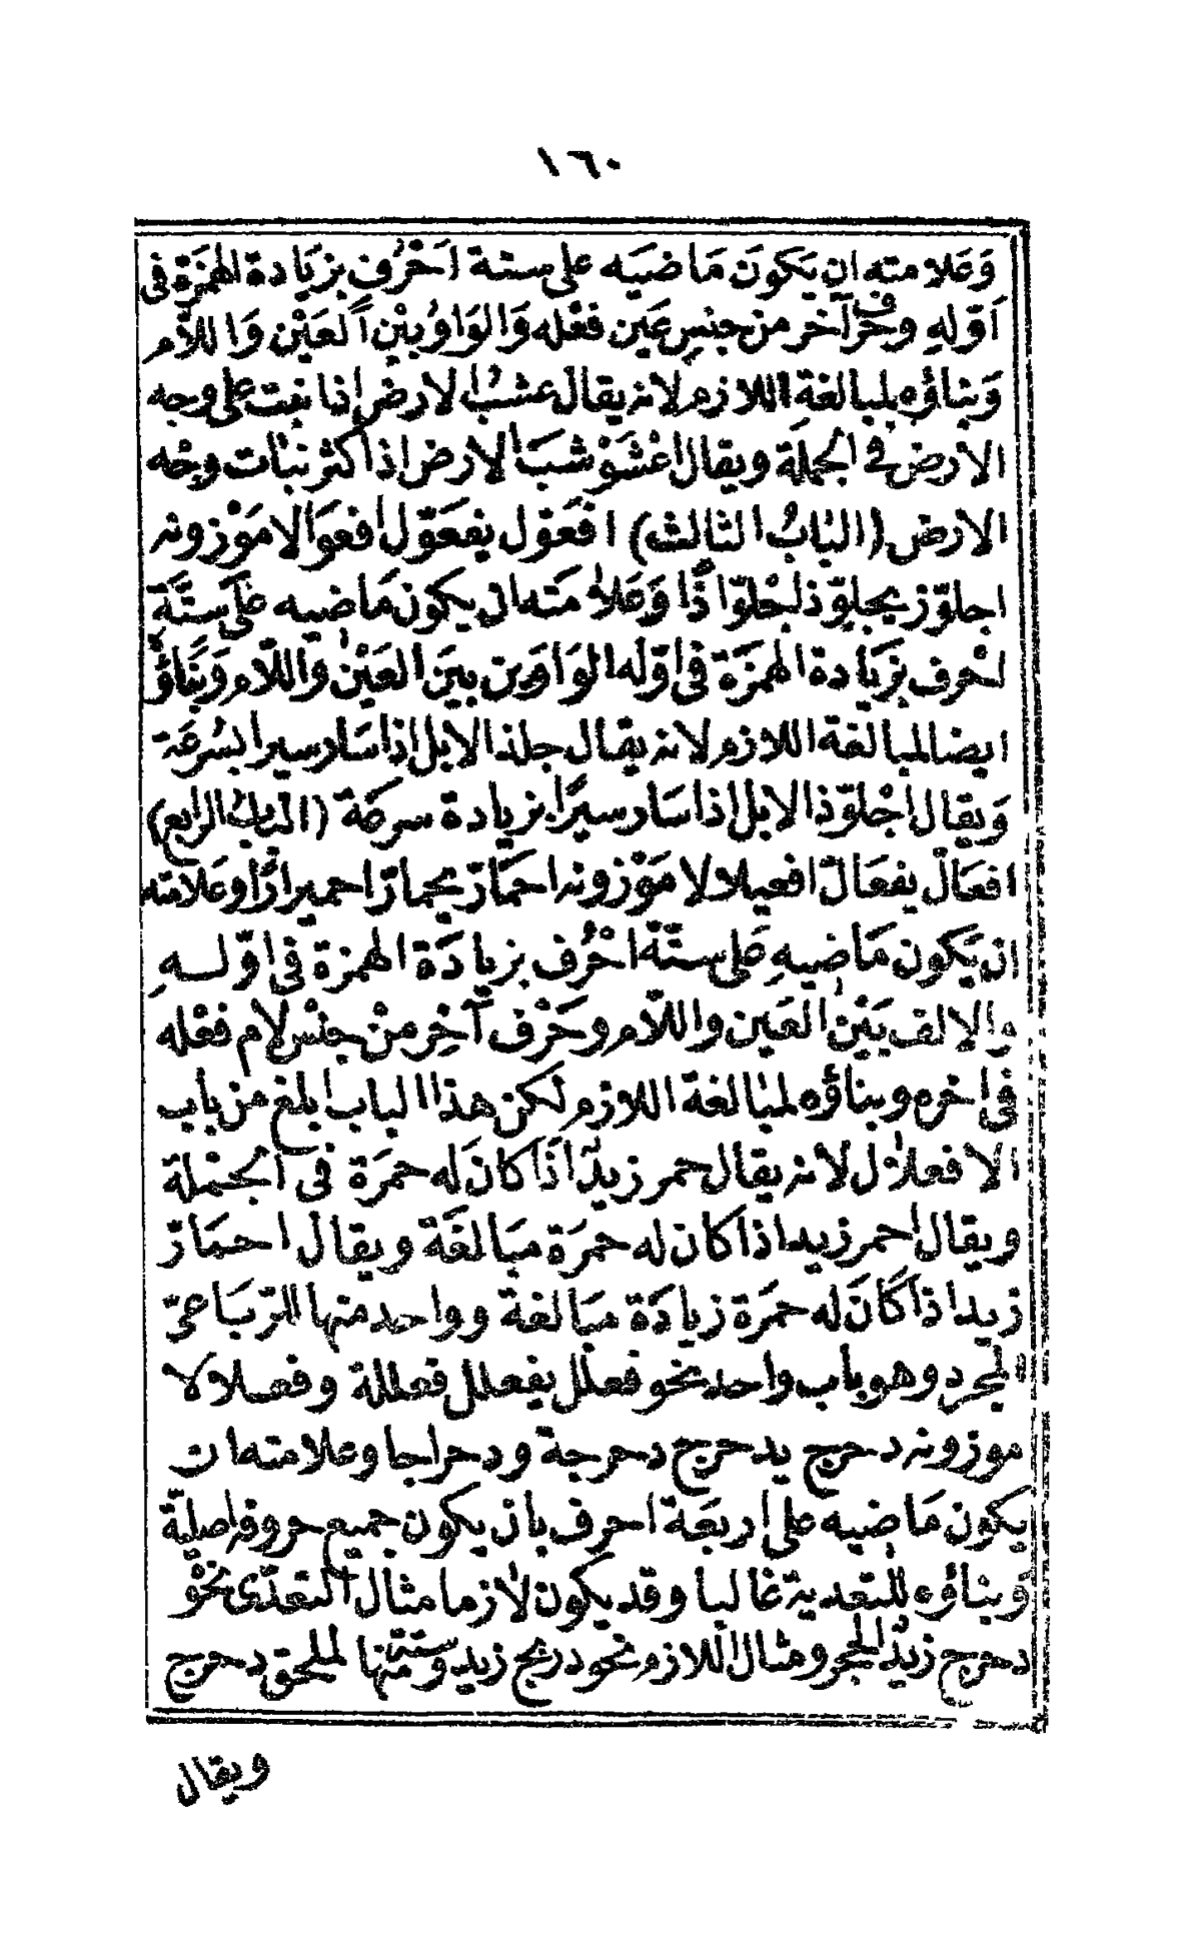 ١٦٠
وَعَلامته ان يَكونَ مَاضيَه على ستة اَحْرُف بزيَادة الهمَزَة فى
اَوّلهِ وحَرف آخر من جنسِ عَين فعْله وَالوَاو بيْن العَيْن وَاللاّم
وَبناؤه لمبالغة اللازم لانه يقال عشب الارض اذا نبت على وجه
الارض فى الجملَة ويقال اعْشَوْشبَ الارض اذا كثر نبات وجْه
الارض (البابُ الثالث) افعَوّل يفعَوّل افعوالا مَوْزونه
اجلوّز يجلوّذ اجْلوّاذًا وَعَلامَته ان يكون مَاضيه على ستَّة
احْرف بزيَادة الهمَزَة فى اوّله والوَاوَين بينَ العَيْن واللاّم وَبناؤه
ايضا لمبالغة اللازم لانه يقال جلذ الابل اذا سَار سيرا بسُرعَة
وَيقال اجْلوّذ الابل اذا سَار سيرًا بزيادة سرعَة (الباب الرابع)
افعَالّ يفعَالّ افعيلالا مَوْزونه احمَارّ يحمارّ احميرارًا وعَلامته
ان يَكون مَاضيهِ عَلى ستّة احْرُف بزيادَة الهمزة فى اوّلـهِ
والالف بَيْن العَين واللاّم وحَرْف آخِر منْ جنْس لام فعْله
فى اخره وبناؤه لمبالغة اللازم لكن هذا الباب ابلغ من باب
الافعلال لانه يقال حمر زيدٌ اذَا كانَ له حمرَة فى الجـْملة
ويقال احمر زيد اذا كان له حمرَة مبَالغَة ويقال احمَارّ
زيد اذا كَانَ له حمَرة زيادَة مبَالغة وواحد منها للرّبَاعىّ
المجرد وهو باب واحد نحو فعلل يفعلل فعللة وفعـلالا
موزونه دحرج يدحرج دحرجة ودحراجا وعلامته ان
يكون مَاضيه على اربعَة احرف بان يكون جميع حروفه اصليّة
وَبناؤه للتعدية غالبا وقد يكون لازما مثال المتعدّى نحْو
دحرج زيدٌ الحجر ومثال اللازم نحو دربج زيد وستة منها لملحق دحرج
ويقال